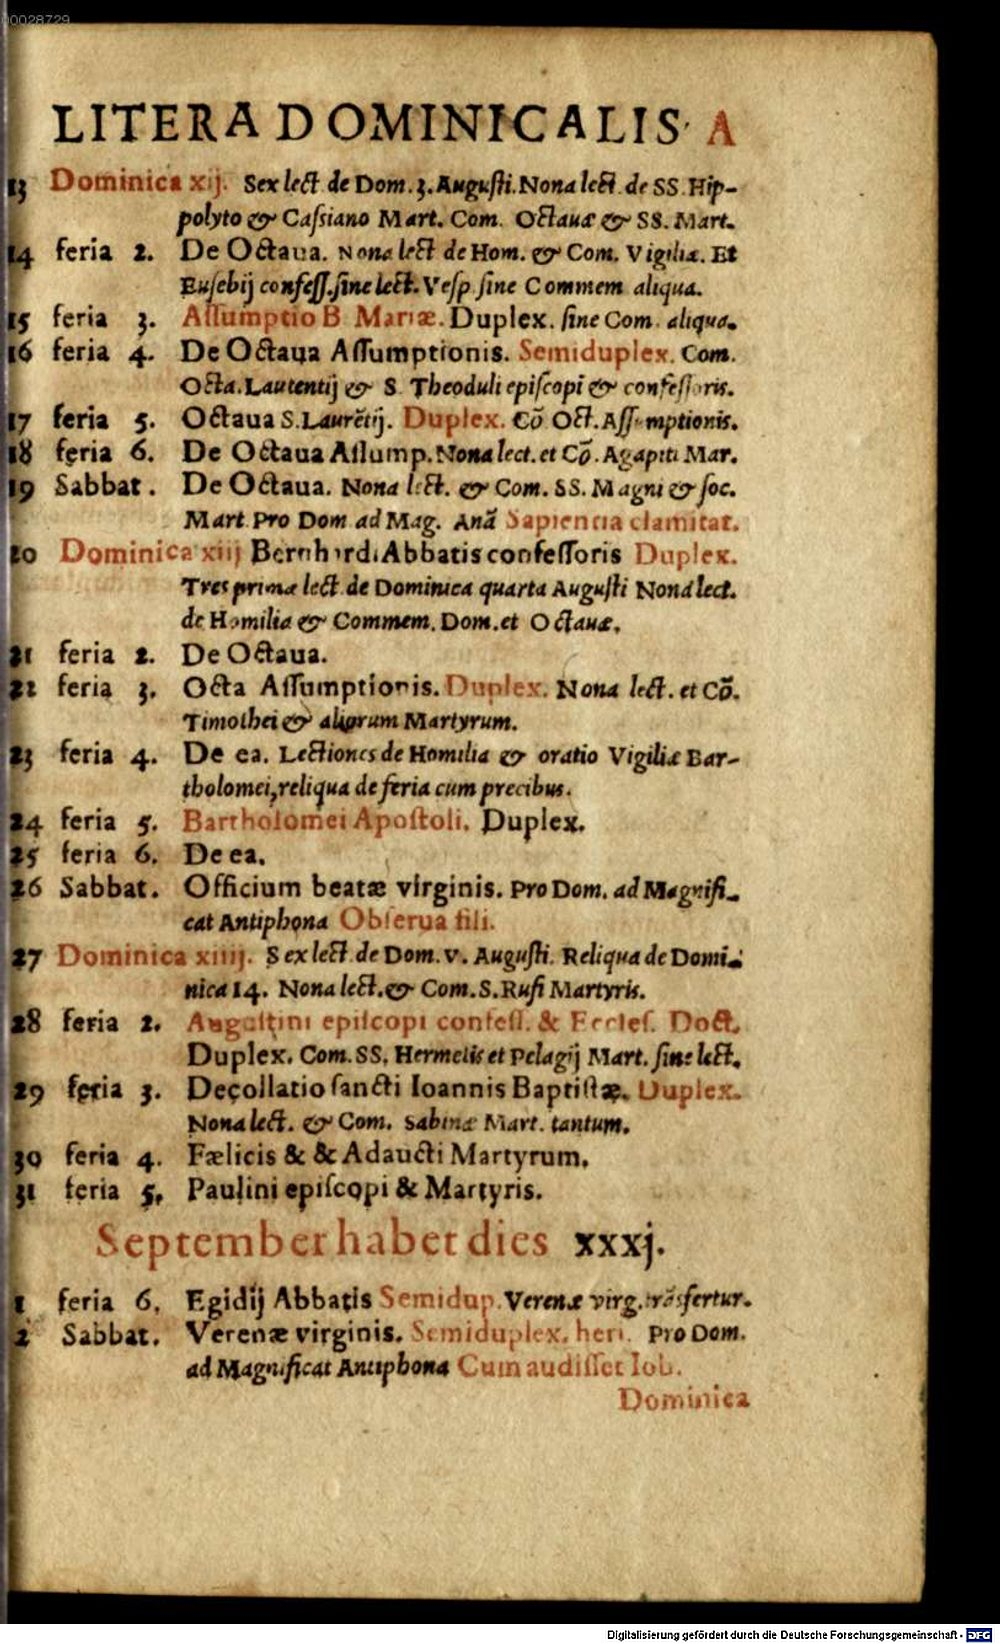 00028729
LITERA DOMINICALIS A
13 Dominica xij. Sex lect de Dom. 3. Augusti. Nona lect. de SS. Hip-
polyto & Caſsiano Mart. Com. Octauæ & SS. Mart.
14 feria 2. De Octaua. Nona lect de Hom. & Com. Vigiliæ. Et
Euſebij confeſſ. ſine lect. Veſp ſine Commem aliqua.
15 feria 3. Aſſumptio B Mariæ. Duplex. ſine Com. aliqua.
16 feria 4. De Octaua Aſſumptionis. Semiduplex. Com.
Octa. Laurentij & S. Theoduli epiſcopi & confeſſoris.
17 feria 5. Octaua S. Laurētij. Duplex. Cō Oct. Aſſumptionis.
18 feria 6. De Octaua Aſſump. Nona lect. et Cō. Agapiti Mar.
19 Sabbat. De Octaua. Nona lect. & Com. SS. Magni & ſoc.
Mart. Pro Dom ad Mag. Anā Sapientia clamitat.
20 Dominica xiij Bernhardi Abbatis confeſſoris Duplex.
Tres primæ lect de Dominica quarta Auguſti Nona lect.
de Homilia & Commem. Dom. et Octauæ.
21 feria 2. De Octaua.
22 feria 3. Octa Aſſumptionis. Duplex. Nona lect. et Cō.
Timothei & aliorum Martyrum.
23 feria 4. De ea. Lectiones de Homilia & oratio Vigiliæ Bar-
tholomei, reliqua de feria cum precibus.
24 feria 5. Bartholomei Apoſtoli. Duplex.
25 feria 6. De ea.
26 Sabbat. Officium beatæ virginis. Pro Dom. ad Magnifi-
cat Antiphona Obſerua fili.
27 Dominica xiiij. Sex lect de Dom. v. Auguſti. Reliqua de Domi-
nica 14. Nona lect. & Com. S. Rufi Martyris.
28 feria 2. Auguſtini epiſcopi confeſſ. & Eccleſ. Doct.
Duplex. Com. SS. Hermetis et Pelagij Mart. ſine lect.
29 feria 3. Decollatio ſancti Ioannis Baptiſtæ. Duplex.
Nona lect. & Com. Sabinæ Mart. tantum.
30 feria 4. Fælicis & & Adaucti Martyrum.
31 feria 5. Paulini epiſcopi & Martyris.
September habet dies xxxj.
1 feria 6. Egidij Abbatis Semidup. Verenæ virg. trāſfertur.
2 Sabbat. Verenæ virginis. Semiduplex. heri. Pro Dom.
ad Magnificat Antiphona Cum audiſſet Iob.
Dominica
Digitalisierung gefördert durch die Deutsche Forschungsgemeinschaft - DFG